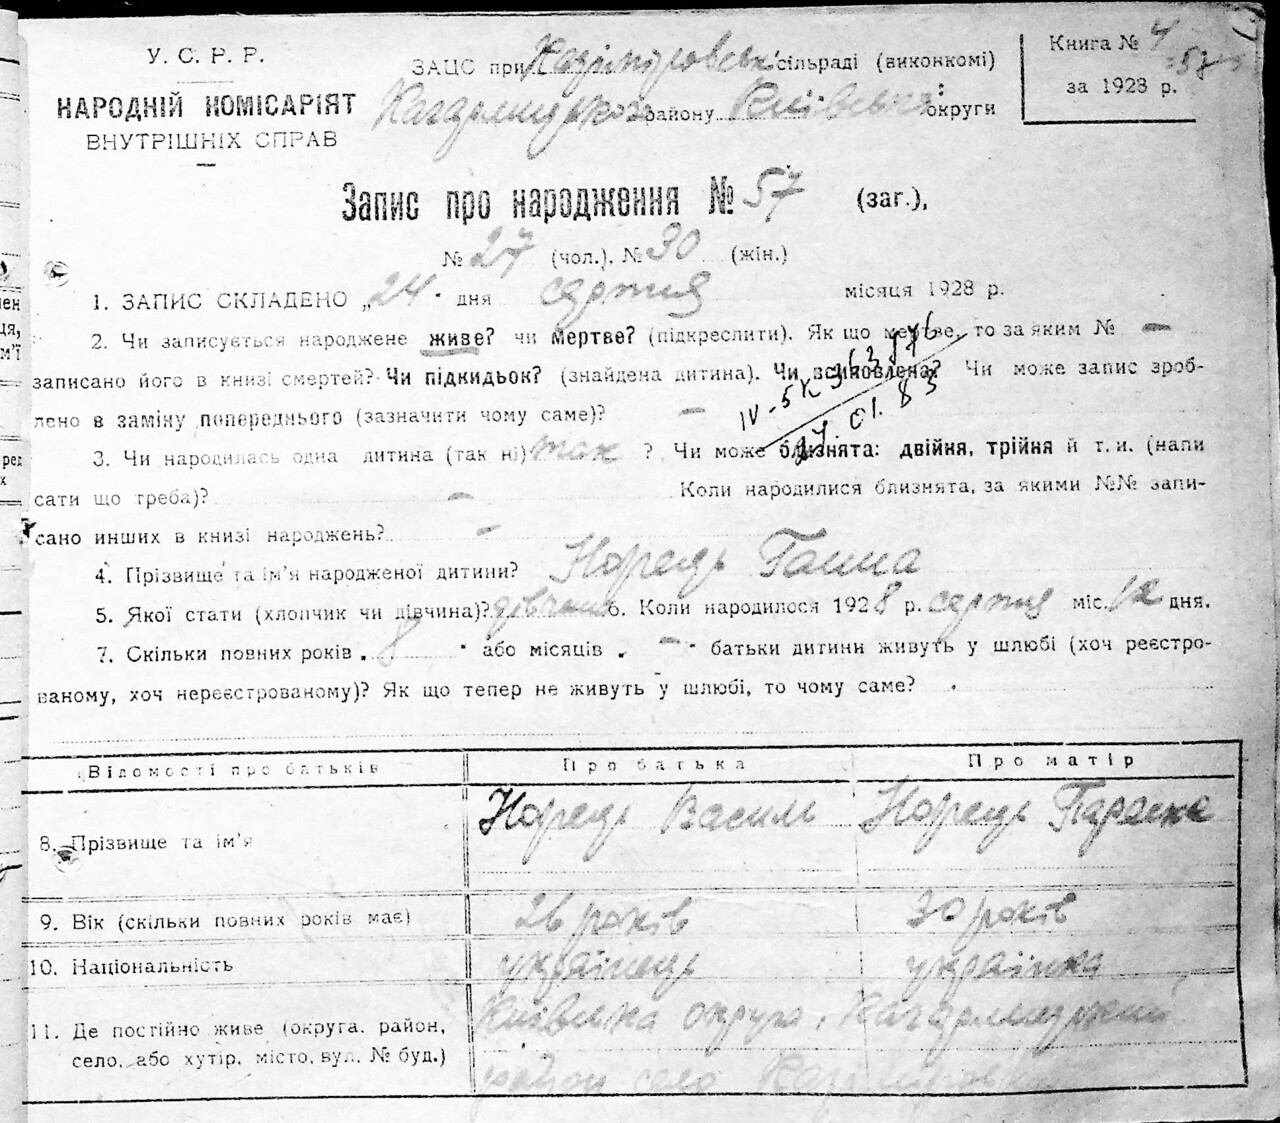 У. С. Р. Р.
НАРОДНІЙ КОМІСАРІЯТ
ВНУТРІШНІХ СПРАВ
ЗАЦС при Казіміровськ. сільраді (виконкомі)
Кагарлицькій району Київська округи
Книга № 4
за 1928 р.
Запис про народження № 57 (заг.),
№ 27 (чол.), № 30 (жін.)
1. ЗАПИС СКЛАДЕНО „24" дня серпня місяця 1928 р.
2. Чи записується народжене живе? чи мертве? (підкреслити). Як що мертве, то за яким № —
записано його в книзі смертей? Чи підкидьок? (знайдена дитина). Чи всиновлена? Чи може запис зроб-
лено в заміну попереднього (зазначити чому саме)? —
3. Чи народилась одна дитина (так ні) так ? Чи може близнята: двійня, трійня й т. и. (напи
сати що треба)? — Коли народилися близнята, за якими №№ запи-
сано инших в книзі народжень? —
4. Прізвище та ім'я народженої дитини? Норець Ганна
5. Якої стати (хлопчик чи дівчина)? дівчина 6. Коли народилося 1928 р. серпня міс. 12 дня.
7. Скільки повних років 8 або місяців — батьки дитини живуть у шлюбі (хоч реєстро-
ваному, хоч нереєстрованому)? Як що тепер не живуть у шлюбі, то чому саме?
Відомості про батьків Про батька Про матір
8. Прізвище та ім'я Норець Василь Норець Параска
9. Вік (скільки повних років має) 26 років 30 років
10. Національність українець українка
11. Де постійно живе (округа, район, Київська округа, Кагарлицький
село, або хутір, місто, вул. № буд.) район село